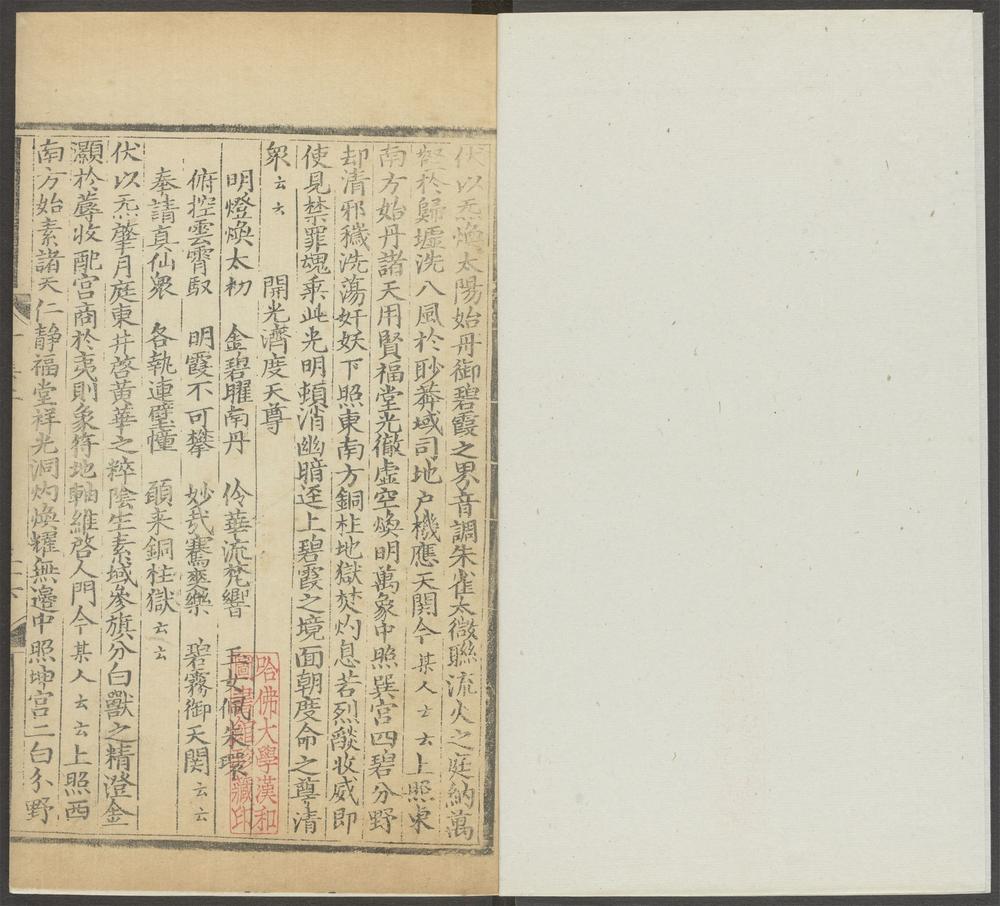 伏以炁煥太陽始丹御碧霞之界音調朱雀太微聯流火之庭納萬
壑於歸墟洗八風於眇莽域司地户機應天関今某人云云上照東
南方始丹諸天用賢福堂光徹虚空煥明萬象中照巽宫四碧分野
却清邪穢洗蕩奸妖下照東南方銅柱地獄焚灼息若烈燄收威即
使見禁罪魂乘此光明頓消幽暗逕上碧霞之境面朝度命之尊清
衆云云
開光濟度天尊
明燈煥太初　金碧曜南丹　伶華流梵響　玉女佩朱環
俯控雲霄馭　明霞不可攀　妙哉騫爽樂　碧霧御天関云云
奉請真仙衆　各執連璧幢　願来銅柱獄云云
伏以炁肇月庭東井啓黄華之粹陰生素域參旗分白獸之精澄金
灝於蓐收配宫商於夷則象符地軸維啓人門今某人云云上照西
南方始素諸天仁靜福堂祥光洞灼煥耀無邉中照坤宫二白分野
哈佛大學漢和
圖書館珍藏印